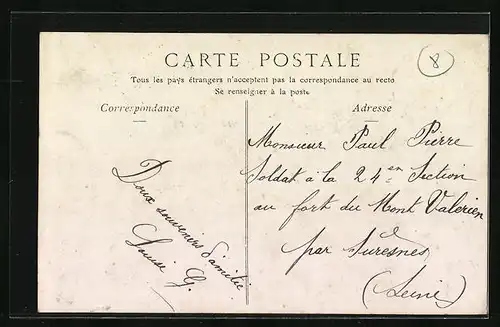 CARTE POSTALE
Tous les pays étrangers n'acceptent pas la correspondance au recto
Se renseigner à la poste
8
Correspondance
Adresse
Doux souvenirs d'amitié
Louise G.
Monsieur Paul Pierre
Soldat à la 24 en Section
au fort du Mont Valerien
par Suresnes
(Seine)